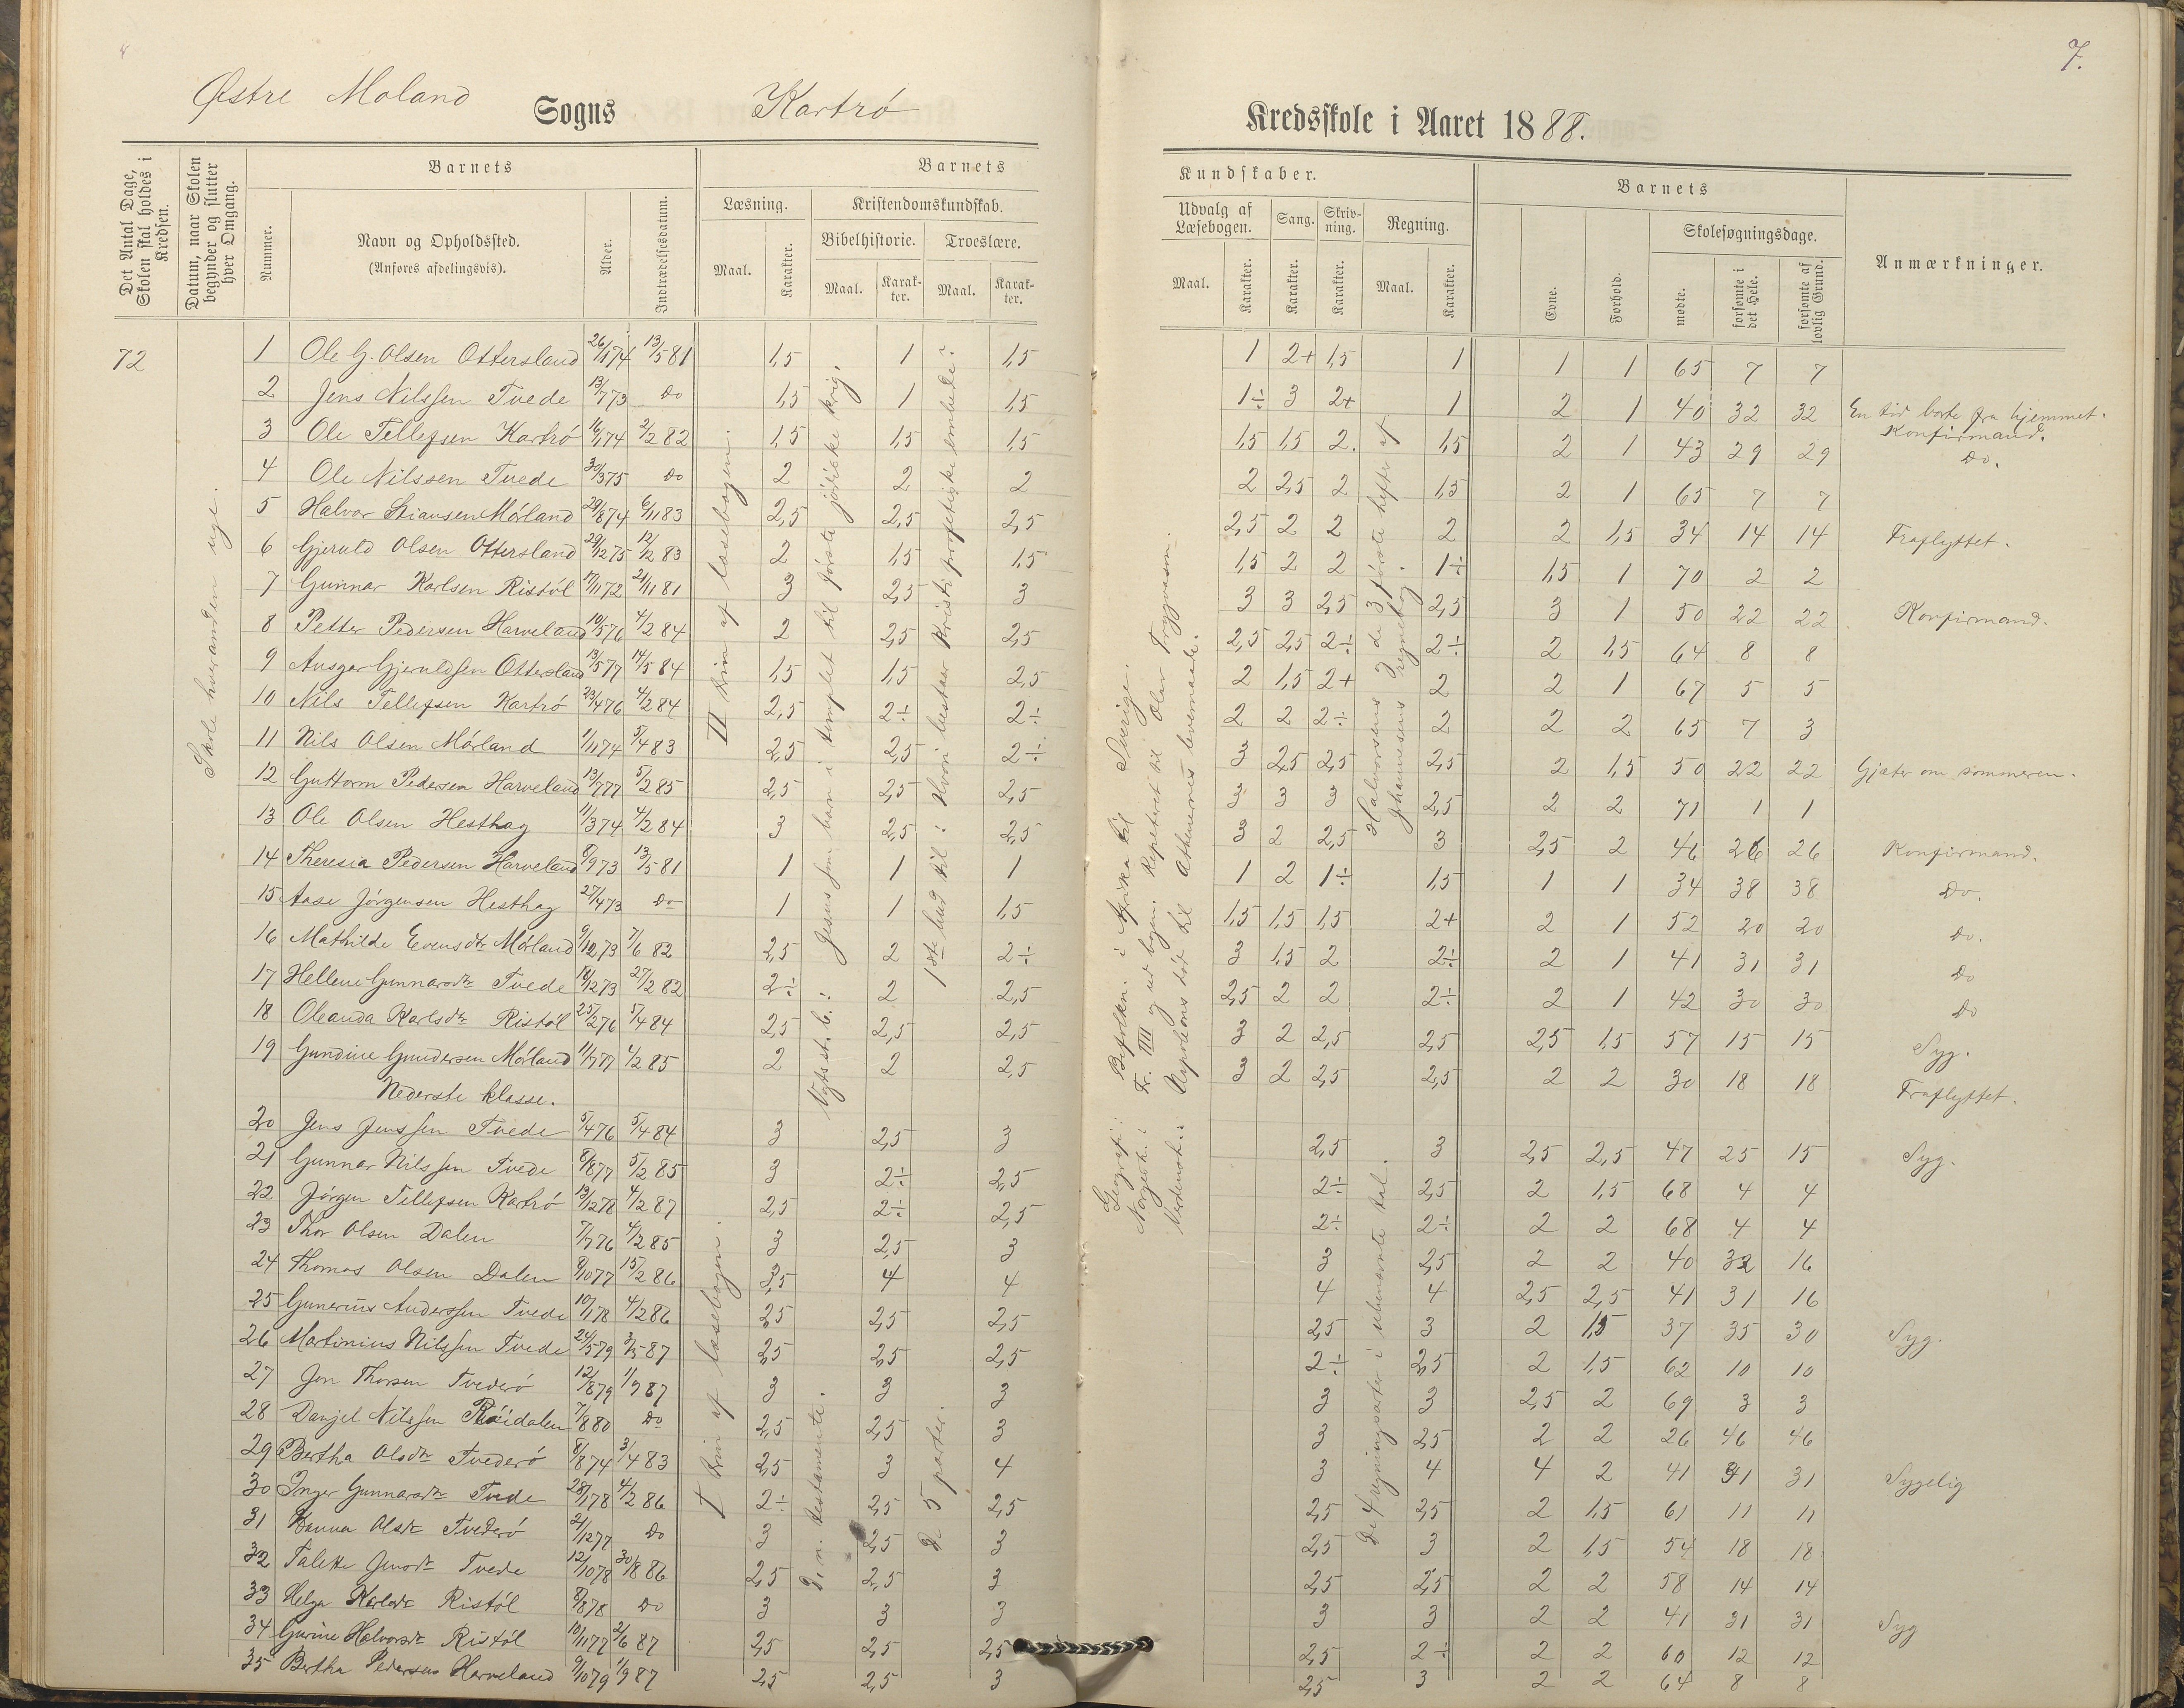 7.
Østre Moland Sogns Kartrö Kredsskole i Aaret 1888.
Det Antal Dage, Skolen skal holdes i Kredsen.
Datum, naar Skolen begynder og slutter hver Omgang.
Barnets
Nummer.
Navn og Opholdssted.
(Anføres afdelingsvis).
Alder.
Indtrædelsesdatum.
Barnets Kundskaber.
Læsning. Kristendomskundskab. Udvalg af Læsebogen. Sang. Skrivning. Regning.
Bibelhistorie. Troeslære.
Maal. Karakter. Maal. Karakter. Maal. Karakter. Maal. Karakter. Karakter. Karakter. Maal. Karakter.
Barnets
Evne. Forhold. Skolesøgningsdage.
mødte. forsømte i det Hele. forsømte af lovlig Grund.
Anmærkninger.
72
Skole hveranden uge.
1 Ole G. Olsen Ottersland 26/1 74 13/5 81 1,5 1 1,5 1 2+ 1,5 1 1 1 65 7 7
2 Jens Nilssen Tvede 13/7 73 Do 1,5 1 1,5 1÷ 3 2+ 1 2 1 40 32 32 En tid borte fra hjemmet. Konfirmand.
3 Ole Tellefsen Kartrö 16/1 74 2/2 82 1,5 1,5 1,5 1,5 1,5 2. 1,5 2 1 43 29 29 Do.
4 Ole Nilssen Tvede 30/3 75 Do 2 2 2 2 2,5 2 1,5 2 1 65 7 7
5 Halvor Stiansen Mörland 29/8 74 6/11 83 2,5 2,5 2,5 2,5 2 2 2 2 1,5 34 14 14 Fraflyttet.
6 Gjeruld Olsen Ottersland 29/12 75 12/12 83 2 1,5 1,5 1,5 2 2 1÷ 1,5 1 70 2 2
7 Gunnar Karlsen Ristöl 17/11 72 21/11 81 3 2,5 3 3 3 2,5 2,5 3 1 50 22 22 Konfirmand.
8 Petter Pedersen Harveland 10/5 76 4/2 84 2 2,5 2,5 2,5 2,5 2÷ 2÷ 2 1,5 64 8 8
9 Ansgar Gjeruldsen Ottersland 13/5 77 14/5 84 1,5 1,5 2,5 2 1,5 2+ 2 2 1 67 5 5
10 Nils Tellefsen Kartrö 23/4 76 4/2 84 2,5 2÷ 2÷ 2 2 2÷ 2 2 2 65 7 3
11 Nils Olsen Mörland 1/11 74 5/4 83 2,5 2,5 2÷ 3 2,5 2,5 2,5 2 1,5 50 22 22 Gjæter om sommeren.
12 Guttorm Pedersen Harveland 13/7 77 5/2 85 2,5 2,5 2,5 3 3 3 2,5 2 2 71 1 1
13 Ole Olsen Hesthag 11/3 74 4/2 84 3 2,5 2,5 3 2 2,5 3 2,5 2 46 26 26 Konfirmand.
14 Theresia Pedersen Harveland 8/9 73 13/5 81 1 1 1 1 2 1÷ 1,5 1 1 34 38 38 Do.
15 Aase Jörgensen Hesthag 27/4 73 Do 1 1 1,5 1,5 1,5 1,5 2+ 2 1 52 20 20 Do.
16 Mathilde Evensdtr Mörland 9/12 73 7/6 82 2,5 2 2÷ 3 1,5 2 2÷ 2 1 41 31 31 Do
17 Hellene Gunnarsdtr Tvede 18/12 73 27/2 82 2÷ 2 2,5 2,5 2 2 2÷ 2 1 42 30 30 Do
18 Oleanda Karlsdtr Ristöl 25/2 76 5/4 84 2,5 2,5 2,5 3 2 2,5 2,5 2,5 1,5 57 15 15 Syg.
19 Gundine Gundersen Mörland 11/7 77 4/2 85 2 2 2,5 3 2 2,5 2,5 2 2 30 18 18 Fraflyttet.
Nederste klasse.
20 Jens Jenssen Tvede 5/4 76 5/4 84 3 2,5 3 2,5 3 2,5 2,5 47 25 15 Syg.
21 Gunnar Nilssen Tvede 8/8 77 5/2 85 3 2÷ 2,5 2÷ 2,5 2 1,5 68 4 4
22 Jörgen Tellefsen Kartrö 13/12 78 4/2 87 2,5 2÷ 2,5 2÷ 2÷ 2 2 68 4 4
23 Thor Olsen Dalen 7/7 76 4/2 85 3 2,5 3 3 2,5 2 2 40 32 16
24 Thomas Olsen Dalen 8/10 77 15/2 86 3,5 4 4 4 4 2,5 2,5 41 31 16
25 Gunerius Anderssen Tvede 10/1 78 4/2 86 2,5 2,5 2,5 2,5 3 2 1,5 37 35 30 Syg.
26 Martinius Nilssen Tvede 24/5 79 3/5 87 2,5 2,5 2,5 2÷ 2,5 2 1,5 62 10 10
27 Jon Thorsen Tvederö 12/8 79 1/9 87 3 3 3 3 3 2,5 2 69 3 3
28 Danjel Nilssen Röidalen 7/8 80 Do 2,5 2,5 3 3 2,5 2 2 26 46 46
29 Bertha Olsdtr Tvederö 8/8 74 3/4 83 2,5 3 4 3 4 4 2 41 31 31 Sygelig
30 Inger Gunnarsdtr Tvede 28/1 78 4/2 86 2÷ 2,5 2,5 2,5 2,5 2 1,5 61 11 11
31 Hanna Olsdtr Tvederö 21/12 77 Do 3 2,5 3 2,5 3 2 1,5 54 18 18
32 Talette Jensdtr Tvede 12/10 78 30/8 86 2,5 2,5 3 2,5 2,5 2 2 58 14 14
33 Helga Karlsdtr Ristöl 8/8 78 Do 3 3 3 3 3 2 2 41 31 31 Syg
34 Gurine Halvorsdtr Ristöl 10/11 77 2/6 87 2,5 2,5 2,5 2,5 2÷ 2 2 60 12 12
35 Bertha Pedersen Harveland 9/10 79 1/9 87 2,5 2,5 3 2,5 3 2 2 64 8 8
II trin af læsebogen.
Nytest. b.: Jesus som barn i templet til første jødiske krig.
1ste bud til: Hvori bestaar Kristi profetiske embede?
Geografi: Befolkn. i Afrika til Sverige.
Norgesh.: Fr. IIII og ud bogen. Repetert til Olav Trygvason.
Verdensh.: Napoleons död til Athenernes levemaade.
Halvorsens I de 3 første hefter af Johannesens regnebog.
I trin af læsebogen.
D. n. testamente.
De 5 parter.
De 4 regningsarter i ubenævnte tal.